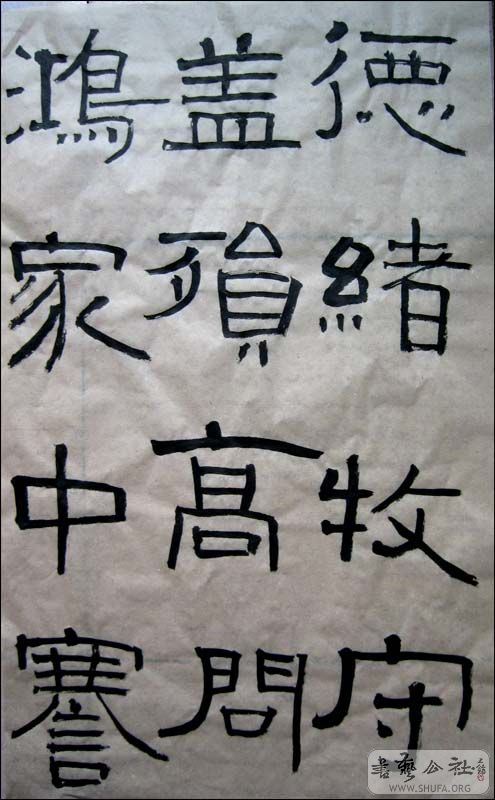 德緒牧守
盖殞高問
鴻家中謇
書藝公社
WWW.SHUFA.ORG